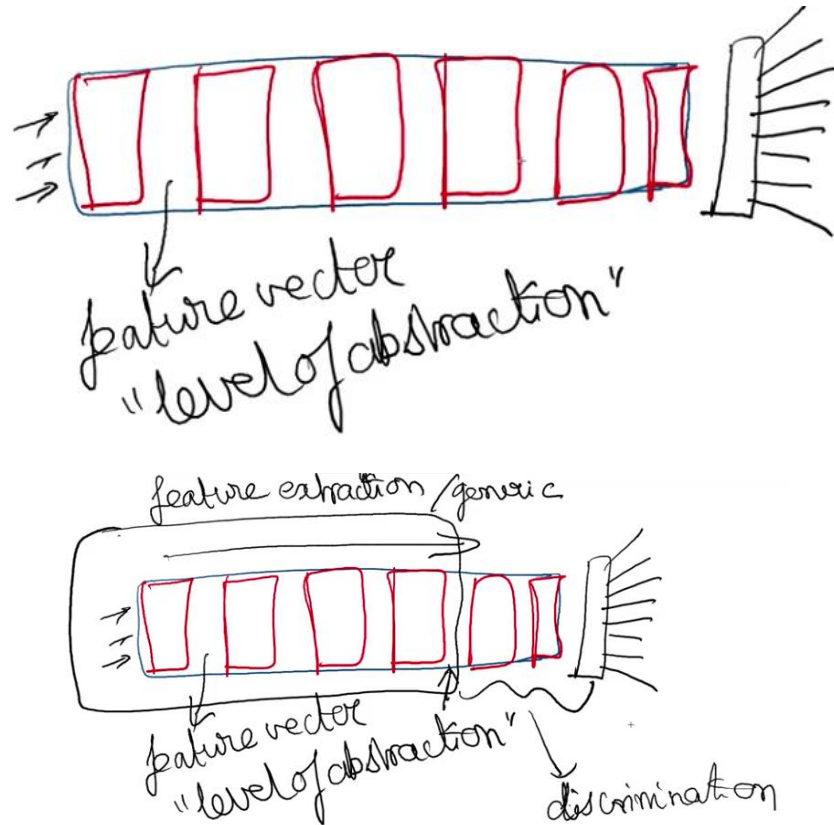 feature vector
"level of abstraction"
feature extraction / generic
feature vector
"level of abstraction"
discrimination